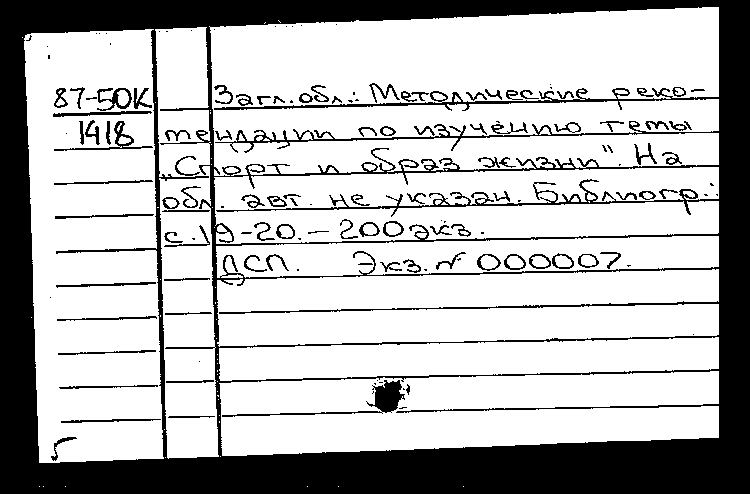 87-50К Загл. обл.: Методические реко-
1418 мендации по изучению темы
„Спорт и образ жизни". На
обл. авт. не указан. Библиогр.:
с. 19-20. – 200 экз.
ДСП. Экз. № 000007.
5